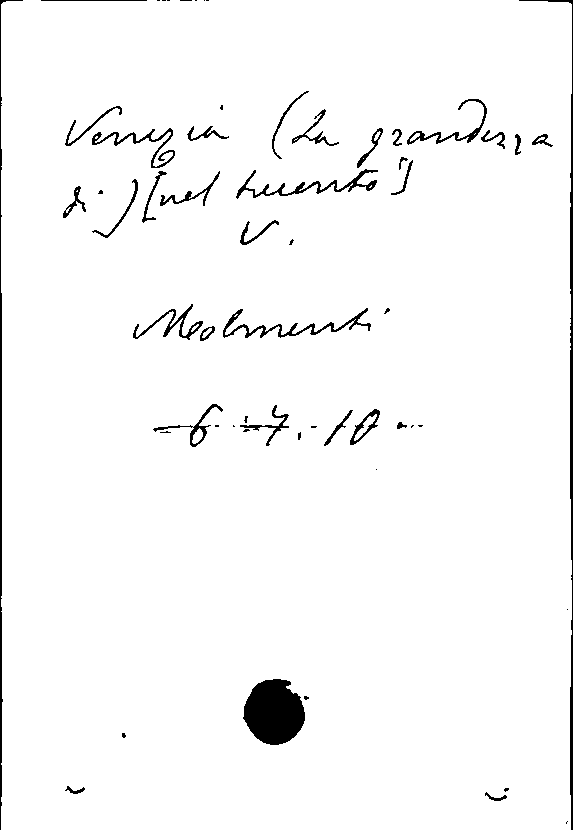 Venezia (La grandezza
di) [nel trecento]
V.
Molmenti
6-7.-10